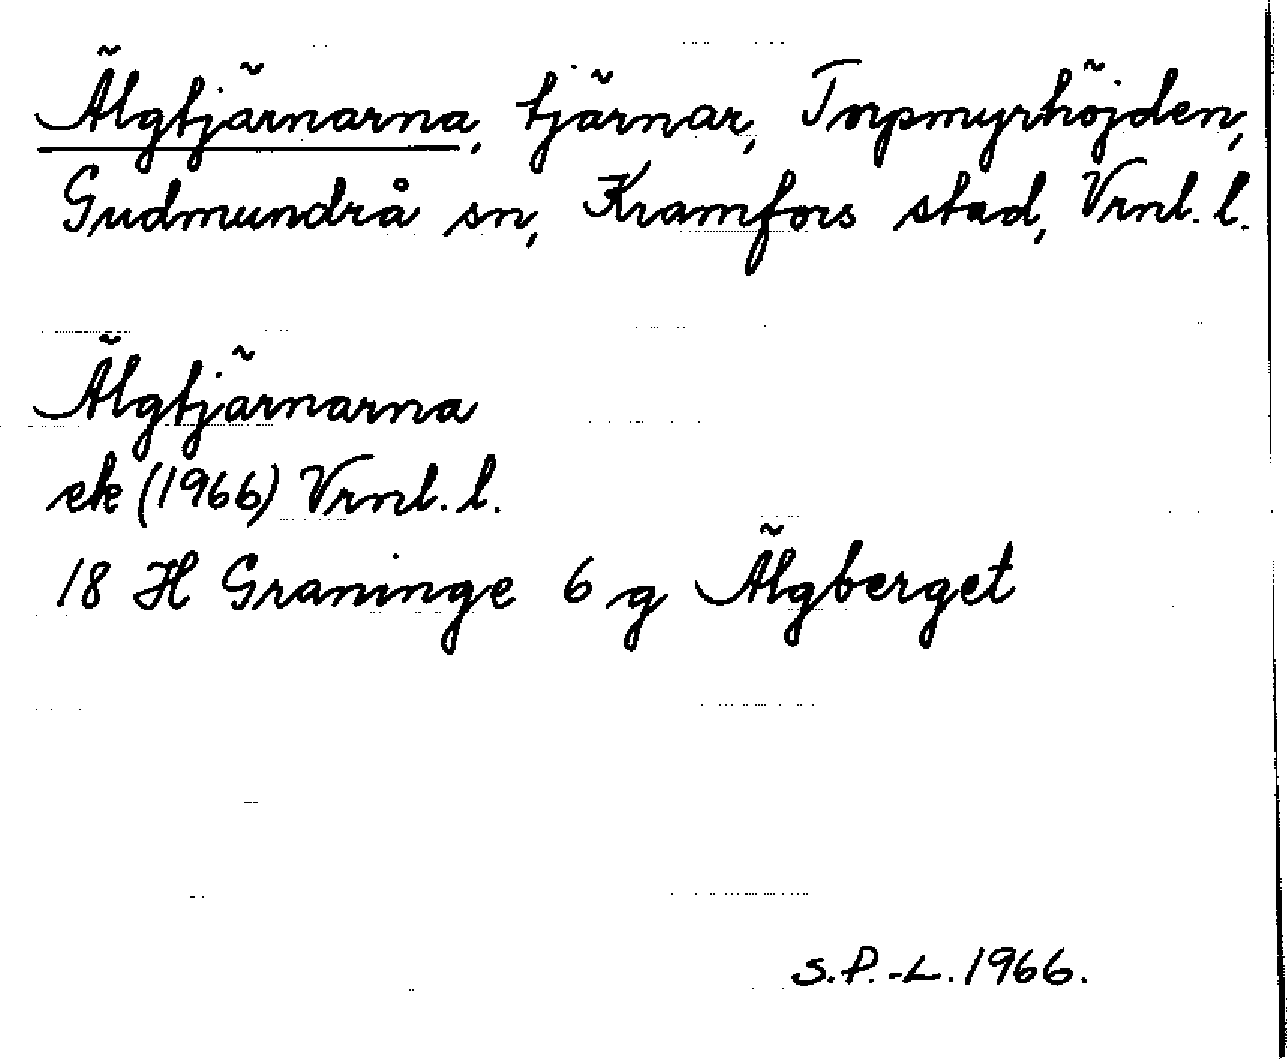 Älgtjärnarna, tjärnar, Torpmyrhöjden,
Gudmundrå sn, Kramfors stad, Vrnl. l.
Älgtjärnarna
ek (1966) Vrnl. l.
18 H Graninge 6 g Älgberget
S.P.-L. 1966.